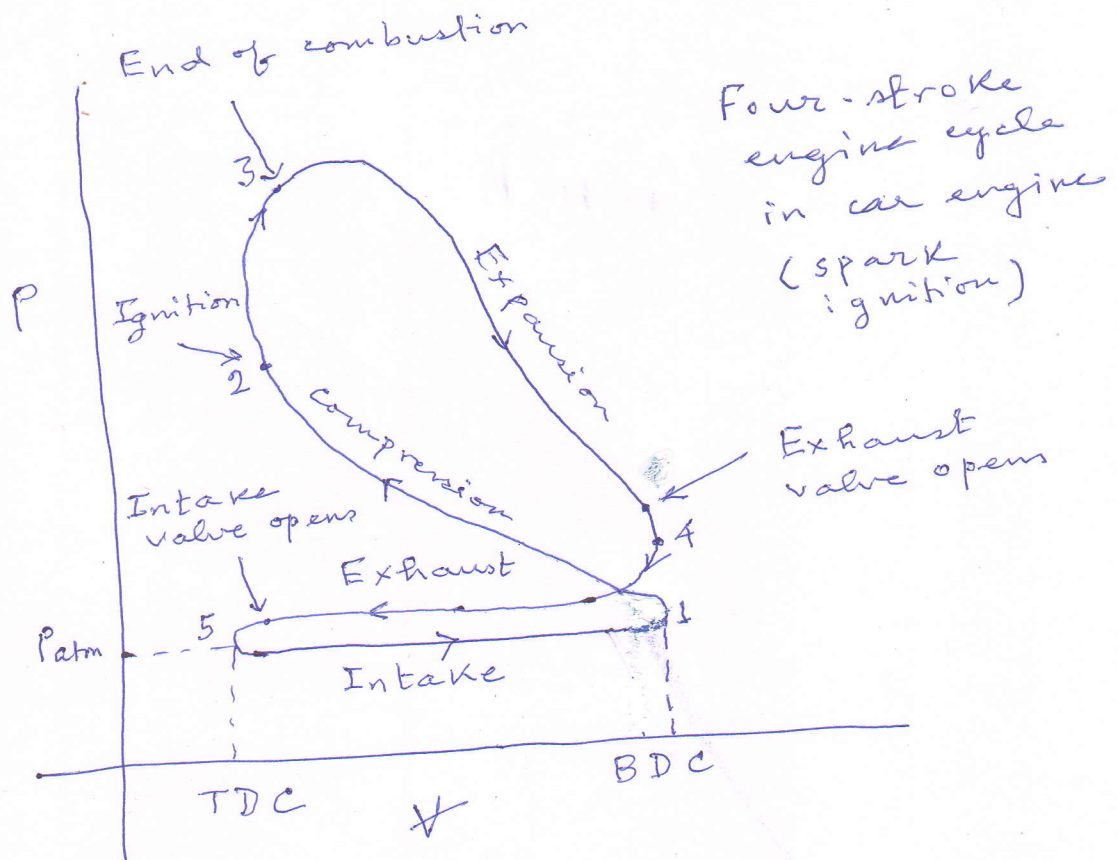 End of combustion
Four-stroke
engine cycle
in car engine
(spark
ignition)
3
P
Ignition
2
Expansion
Compression
Exhaust
valve opens
Intake
valve opens
4
Exhaust
5
1
Patm
Intake
TDC
BDC
V